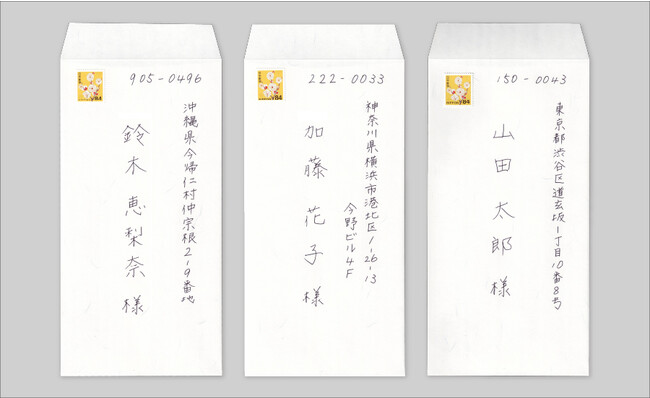 905-0496
沖縄県今帰仁村仲宗根2-9番地
鈴木恵梨奈様
¥84
222-0033
神奈川県横浜市港北区1-26-13
今野ビル4F
加藤花子様
¥84
150-0043
東京都渋谷区道玄坂一丁目10番8号
山田太郎様
¥84